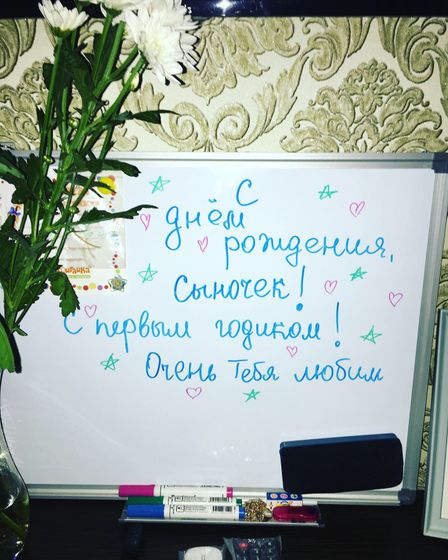 С
днём
рождения,
Сыночек!
С первым годиком!
Очень Тебя любим